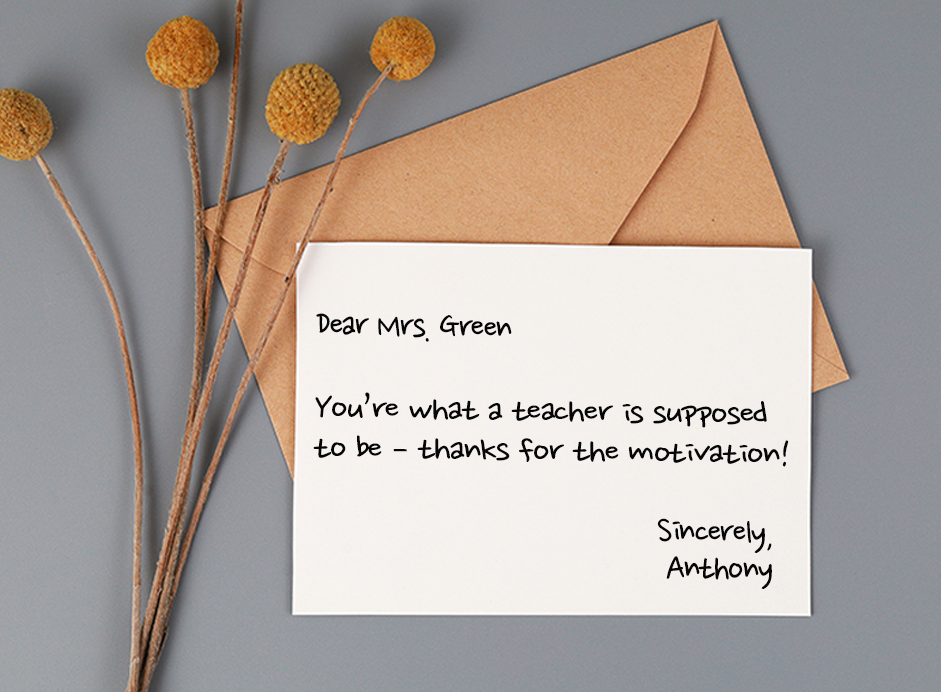 Dear Mrs. Green
You're what a teacher is supposed
to be – thanks for the motivation!
Sincerely,
Anthony